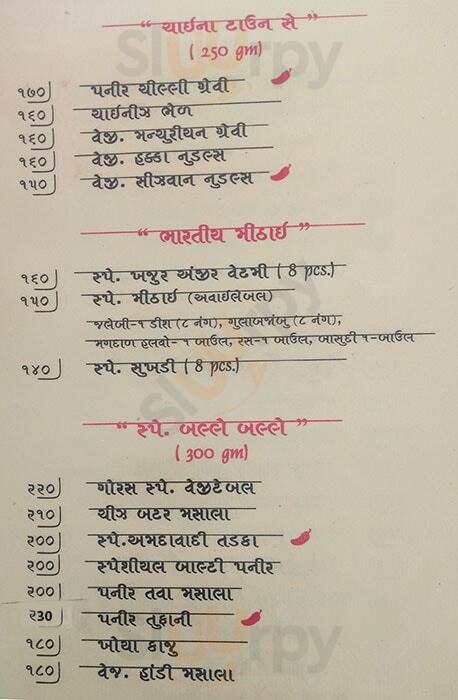 “ ચાઈના ટાઉન સે ”
(250 gm)
૧૭૦/ પનીર ચીલ્લી ગ્રેવી
૧૬૦/ ચાઈનીઝ ભેળ
૧૬૦/ વેજી. મન્ચુરીયન ગ્રેવી
૧૬૦/ વેજી. હક્કા નુડલ્સ
૧૫૦/ વેજી. સીઝવાન નુડલ્સ
“ ભારતીય મીઠાઈ ”
૧૬૦/ સ્પે. ખજુર અંજીર વેઢમી (8 pcs.)
૧૫૦/ સ્પે. મીઠાઈ (અવાઈલેબલ)
જલેબી-૧ ડીશ (૮ નંગ), ગુલાબજાંબુ (૮ નંગ),
મગદાળ હલવો- ૧ બાઉલ, રસ-૧ બાઉલ, બાસુદી ૧-બાઉલ
૧૪૦/ સ્પે. સુખડી (8 pcs.)
“ સ્પે. બલ્લે બલ્લે ”
(300 gm)
૨૨૦/ ગોરસ સ્પે. વેજીટેબલ
૨૧૦/ ચીઝ બટર મસાલા
૨૦૦/ સ્પે.અમદાવાદી તડકા
૨૦૦/ સ્પેશીયલ બાલ્ટી પનીર
૨૦૦/ પનીર તવા મસાલા
૨30/ પનીર તુફાની
૧૮૦/ ખોયા કાજુ
૧૮૦/ વેજ. હાંડી મસાલા